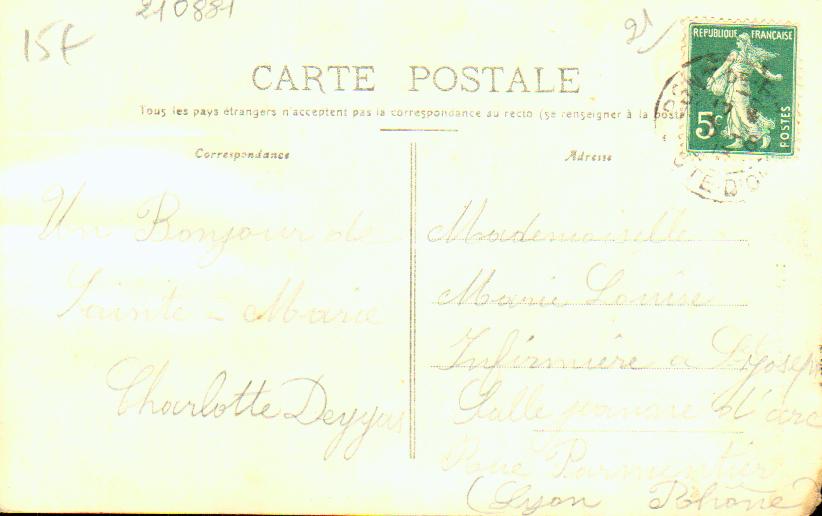 15F
210881
21
RÉPUBLIQUE FRANÇAISE
5c
POSTES
CÔTE-D'OR
CARTE POSTALE
Tous les pays étrangers n'acceptent pas la correspondance au recto (se renseigner à la poste
Correspondance
Un Bonjour de
Sainte - Marie
Charlotte
Adresse
Mademoiselle
Marie Louise
Infirmière a St Joseph
Salle jeanne d'arc
Rue Parmentier
(Lyon Rhône)